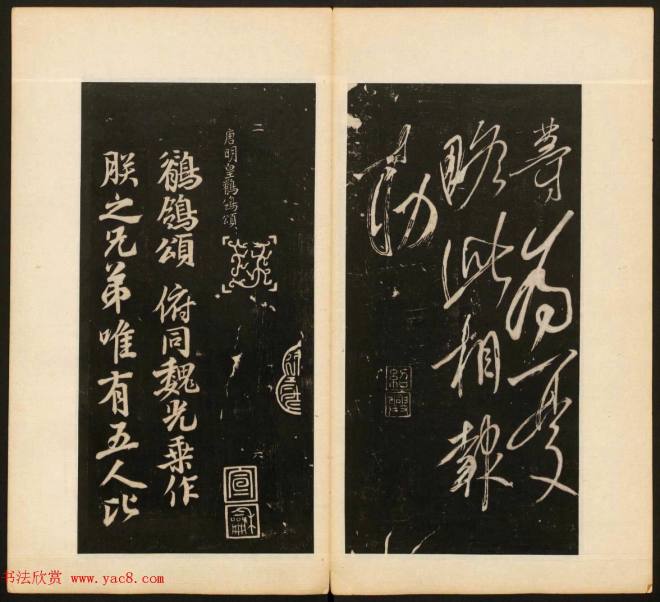 為
此相報
勅
紹興
二
唐明皇鶺鴒頌
六
宣龢
鶺鴒頌 俯同魏光乗作
朕之兄弟唯有五人比
书法欣赏 www.yac8.com